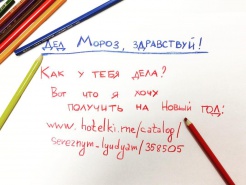 Дед Мороз, здравствуй!
Как у тебя дела?
Вот что я хочу
получить на Новый год:
www.hotelki.me/catalog/
sereznym_lyudyam/358505